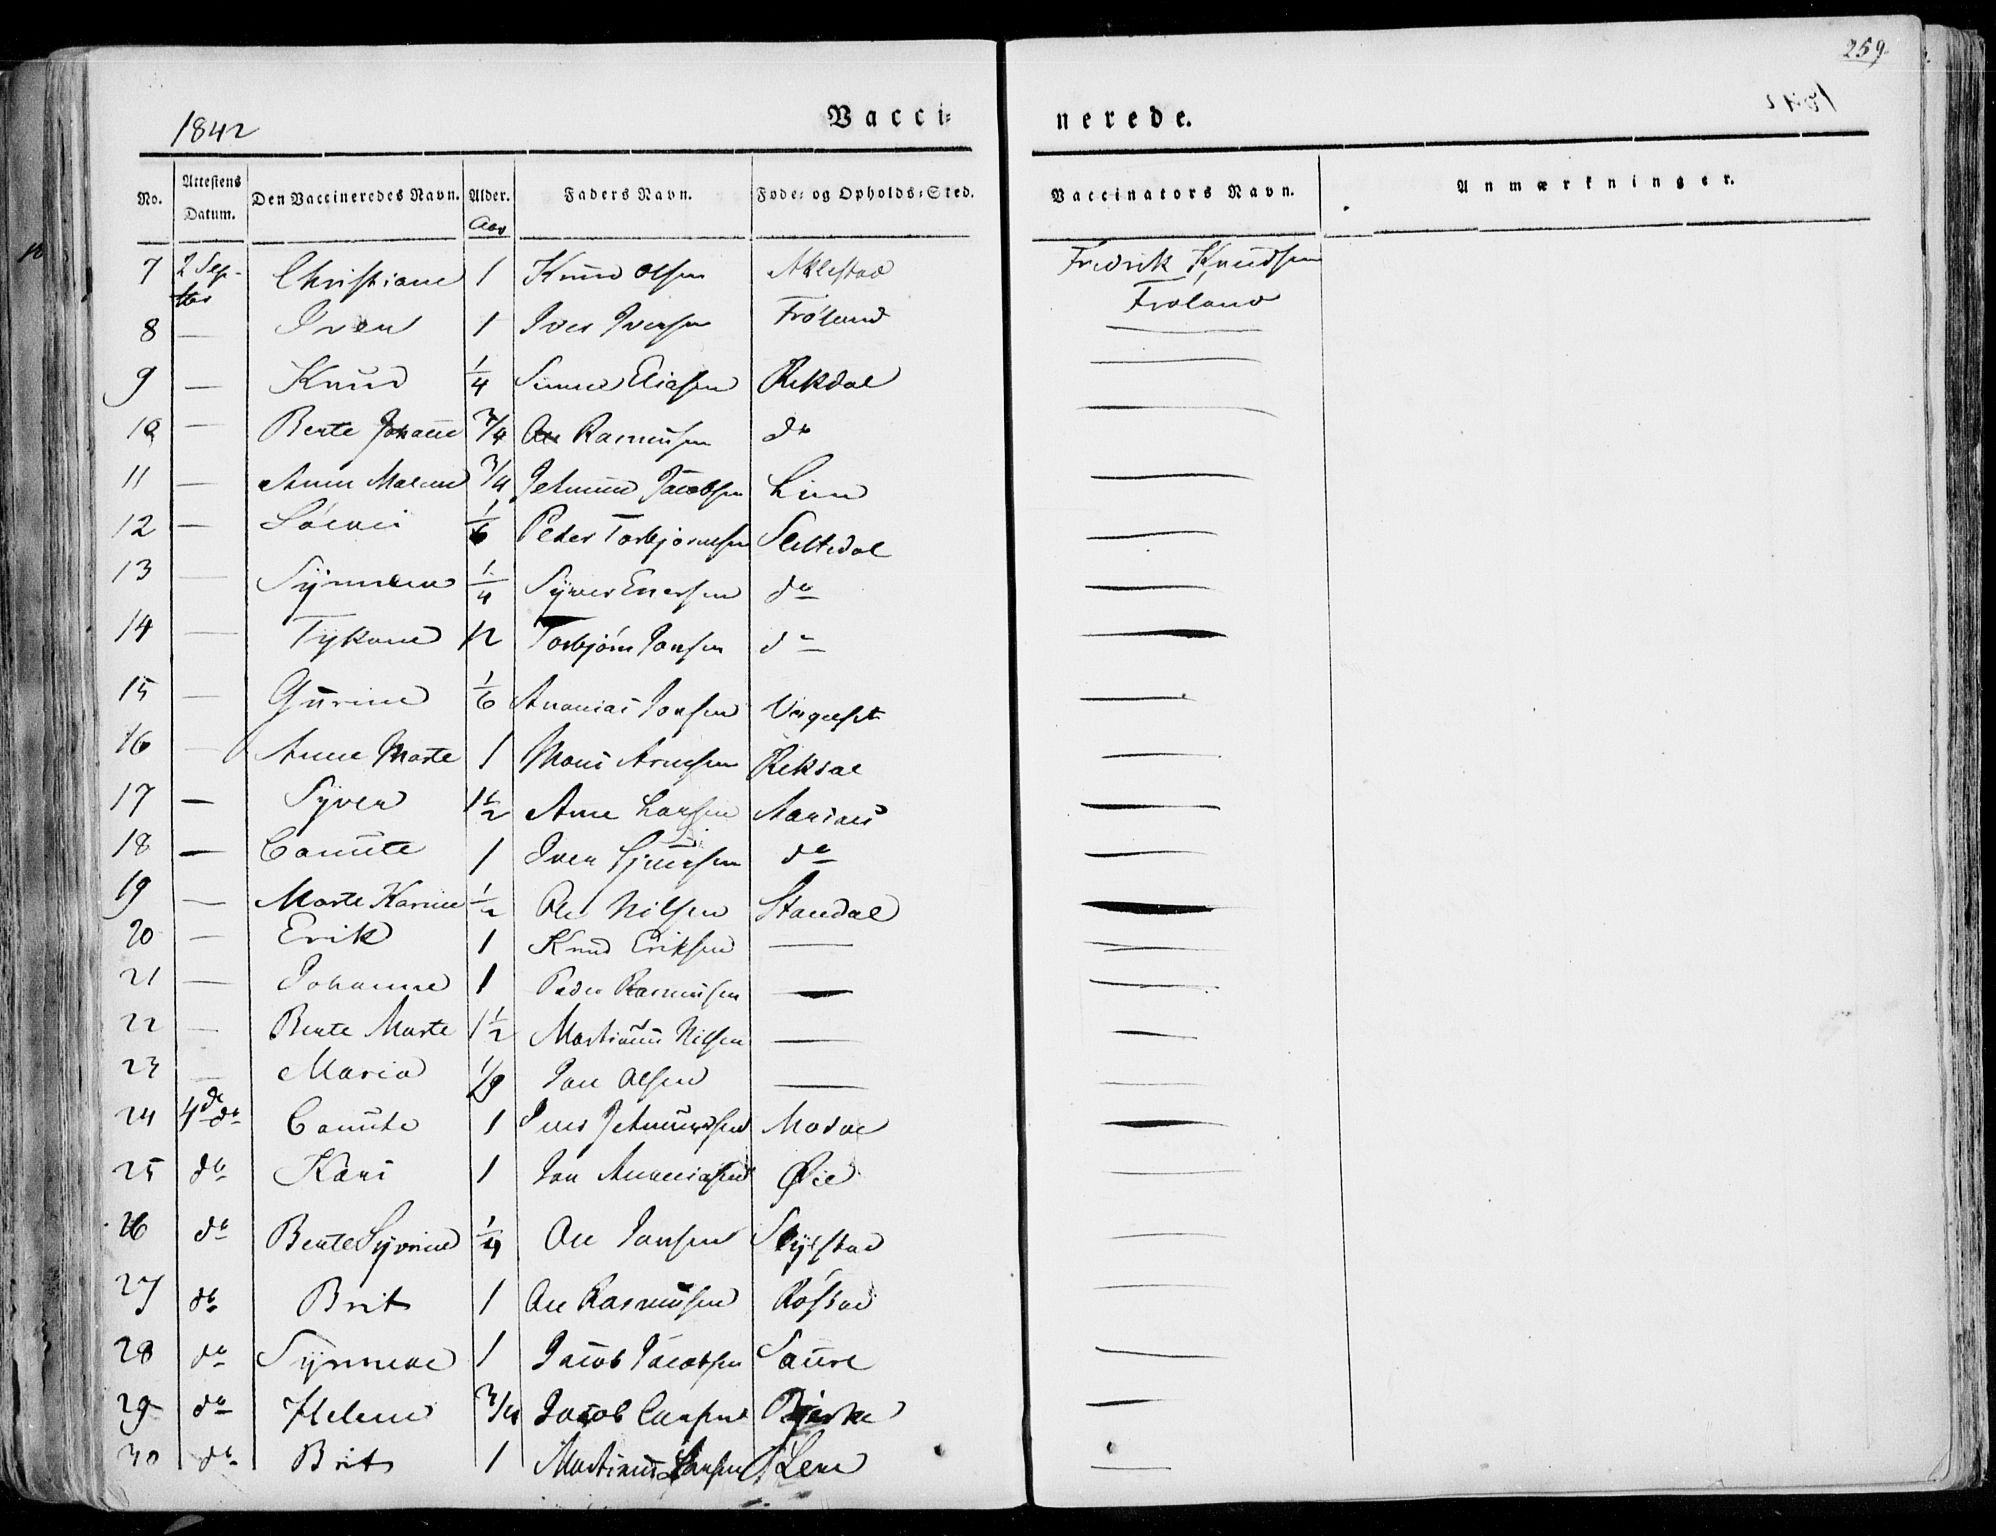 259
1842
Vacci= nerede.
No. Attestens Datum. Den Vaccineredes Navn. Alder. Aar Faders Navn. Føde- og Opholds-Sted. Vaccinators Navn. Anmærkninger.
7 2 Sep- Christiane 1 Knud Olsen Aklestad Fredrik Knudsen
tbr Frøland
8 — Iver 1 Iver Iversen Frøland —
9 — Knud 1/4 Eliasen Rekdal —
10 — Berte Johanne 3/4 Ole Rasmusen do —
11 — Anne Maren 3/4 Jetmund Jacobsen Lien —
12 — 1/6 Peder Torbjørnsen —
13 — Synneve 1/4 Syver do —
14 — 12 Torbjørn Jonsen do —
15 — Gurine 1/6 Ananias Jonsen —
16 — Anne Marte 1 Mons Arnesen Rekdal —
17 — Syver 1 1/2 Arne Larsen —
18 — Canute 1 Iver Sjursen do —
19 — Marte Karine 1/2 Ole Nilsen Standal —
20 — Erik 1 Knud Eriksen — —
21 — Johanne 1 Peder Rasmusen — —
22 — Berte Marte 1 1/2 Martinus Nilsen — —
23 — Maria Jon Olsen — —
24 4de do Canute 1 Iver Jetmundsen —
25 do Kari 1 Jon Ananiasen Øie —
26 do Berte Syvrine 1/4 Ole Jonsen —
27 do Brit 1 Ole Rasmusen Røstad —
28 do Synneve 1 Jacob Jacobsen Saure —
29 do Helene 3/4 Jacob Bjerke —
30 do Brit 1 Martinus Lem —